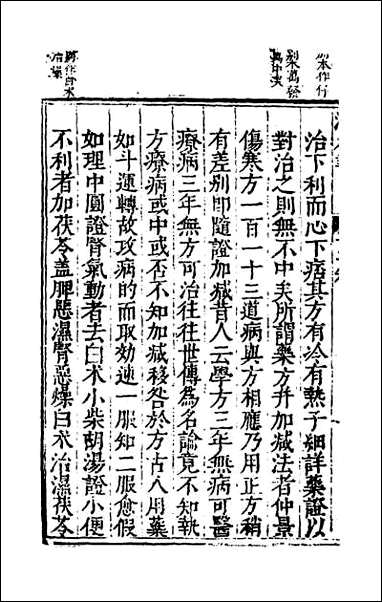 治下利而心下痞其方有冷有熱子細詳藥證以
對治之則無不中矣所謂藥方并加減法者仲景
傷寒方一百一十三道病與方相應乃用正方稍
有差别即隨證加减昔人云學方三年無病可醫
療病三年無方可治往往世傳為名論竟不知執
方療病或中或否不知加减移咎於方古人用藥
如斗運轉故攻病的而取効速一服知二服愈假
如理中圓證腎氣動者去白术小柴胡湯證小便
不利者加茯苓盖脾惡濕腎惡燥白术治濕茯苓
本作行
作白术
治燥